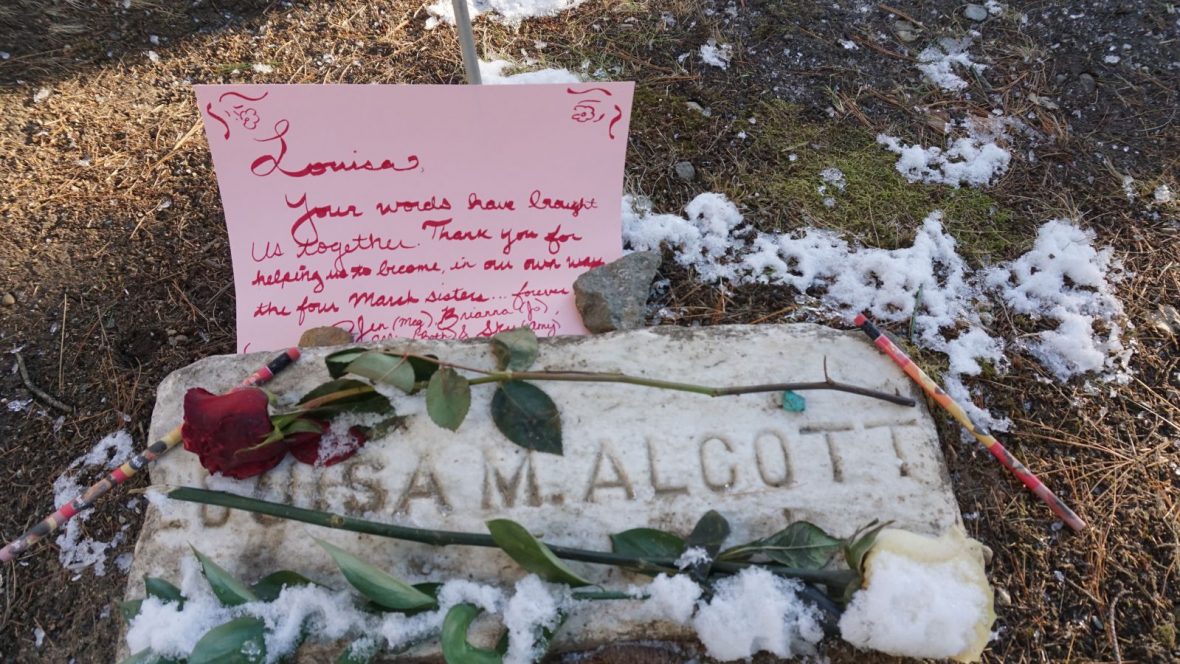 Louisa,
Your words have brought
us together. Thank you for
helping us to become, in our own way
the four March sisters... forever
Jen (Meg), Brianna (Jo),
(Beth) & Sky (Amy)
LOUISA M. ALCOTT